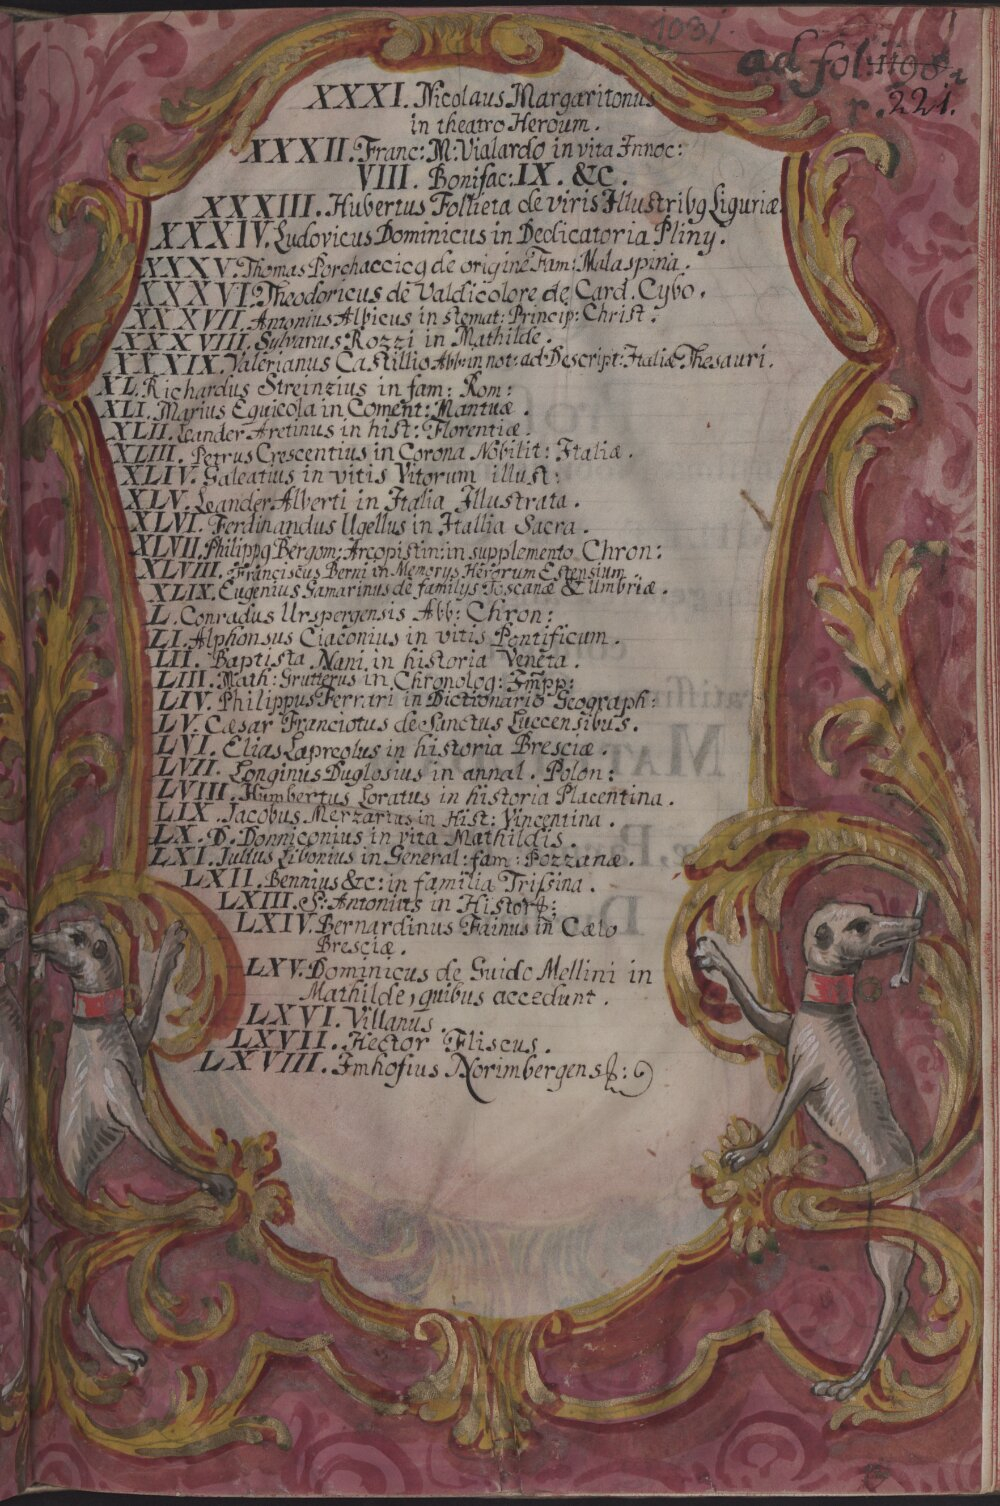 1031.
ad fol: 1198.
r. 221.
XXXI. Nicolaus Margaritonus
in theatro Heroum.
XXXII. Franc: M: Vialardo in vita Innoc:
VIII. Bonifac: IX. &C.
XXXIII. Hubertus Follieta de viris Illustribꝫ Liguriæ.
XXXIV. Ludovicus Dominicus in Dedicatoria Plinÿ.
XXXV. Thomas Porchaccicꝫ de origine Fam: Malaspina.
XXXVI. Theodoricus de Valdicolore de Card. Cybo.
XXXVII. Antonius Albicus in stemat: Princip: Christ:
XXXVIII. Sylvanus Rozzi in Mathilde.
XXXIX. Valerianus Castillio Abb: in not: ad Descript: Italiæ Thesauri.
XL. Richardus Streinzius in fam: Rom:
XLI. Marius Equicola in Coment: Mantuæ.
XLII. Leander Aretinus in hist: Florentiæ.
XLIII. Petrus Crescentius in Corona Nobilit: Italiæ.
XLIV. Galeatius in vitis Vitorum illust:
XLV. Leander Alberti in Italia Illustrata.
XLVI. Ferdinandus Ugellus in Itallia Sacra.
XLVII. Philippꝫ Bergom: Arcopistin: in supplemento Chron:
XLVIII. Franciscus Berni in Memorÿs Herorum Estensium
XLIX. Eugenius Gamarinus de familÿs Toscanæ & Umbriæ.
L. Conradus Urspergensis Abb: Chron:
LI. Alphonsus Ciaconius in vitis Pontificum.
LII. Baptista Nani in historia Veneta.
LIII. Math: Grutterus in Chronolog: Impp:
LIV. Philippus Ferrari in Dictionario Geograph:
LV. Cæsar Franciotus de Sanctus Luccensibus.
LVI. Elias Lapreolus in historia Bresciæ.
LVII. Longinus Duglosius in annal. Polon:
LVIII. Humbertus Loratus in historia Placentina.
LIX. Jacobus Merzarius in Hist: Vincentina.
LX. D. Donniconius in vita Mathildis.
LXI. Julius Libonius in General: fam: Pozzanæ.
LXII. Bennius &c: in familia Trissina.
LXIII. S: Antonius in Histor:
LXIV. Bernardinus Fainus in Cælo
Bresciæ.
LXV. Dominicus de Guide Mellini in
Mathilde, quibus accedunt.
LXVI. Villanus.
LXVII. Hector Fliscus.
LXVIII. Imhofius Norimbergens: